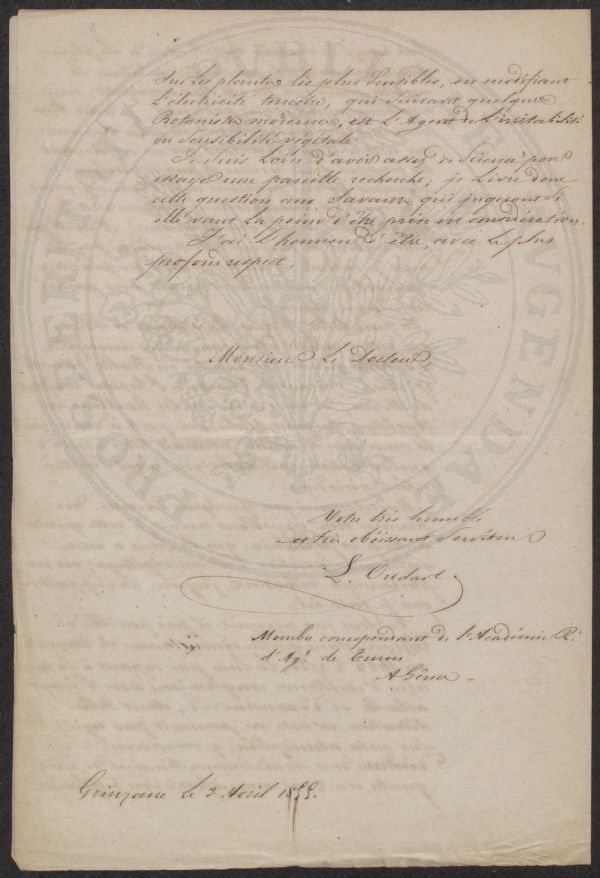 sur les plantes les plus sensibles, en modifiant
l'électricité terrestre, qui suivant quelques
Botanistes modernes, est l'Agent de l'irritabilité
ou sensibilité végétale.
Je suis loin d'avoir assez de Science pour
essayer une pareille recherche; je livre donc
cette question aux Savants qui jugeront si
elle vaut la peine d'être prise en considération.
J'ai l'honneur d'être, avec le plus
profond respect,
Monsieur Le Docteur,
Votre très humble
et très obéissant Serviteur
L. Oudart
Membre correspondant de l'Académie R.
d'Agr. de Turin
A Gênes
Grinzane le 3 Avril 1855.
PROSPERITATI
CIVIBUS
AUGENDAE